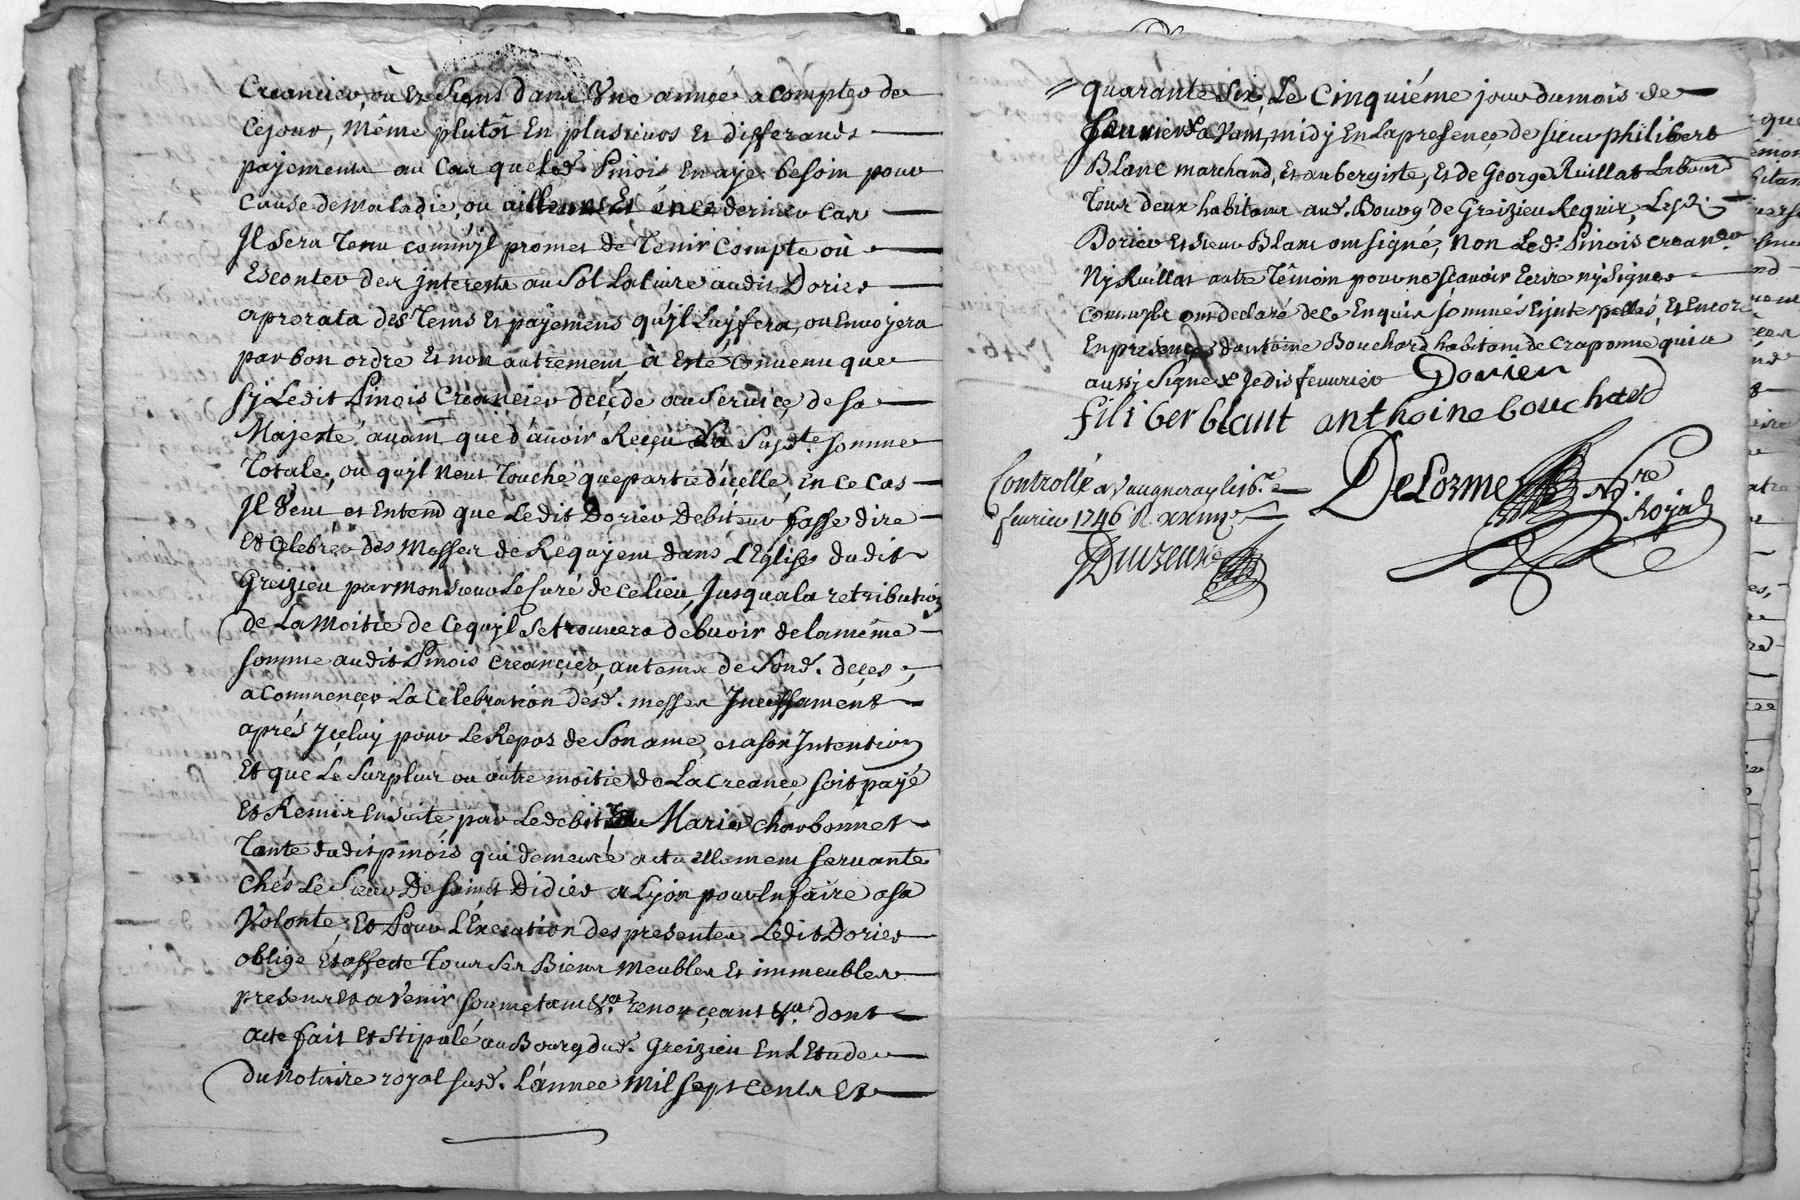 Creancier, où Es Siens dans Une année a compter de
Cejour, Même plutôt En plusieurs Et differands
payements au Cas queled. Pinois En aye besoin pour
Cause de Maladie, ou ailleurs Et én ce dernier Cas
Jl Sera Tenu comm'jl promet de Tenir Compte où
Esconter des jnterests au Sol La Livre audit Dorier
aprorata des Tems Et payemens qu'jl Luy fera, ou Envoyera
par bon ordre Et non autrement, à Esté Convenu que
Sy Ledit Pinois Creancier décéde au Service de Sa
Majesté, avant que d'avoir Reçeu La Susdte. Somme
Totale, ou qu'jl N'eut Touché que partie d'icelle, En Ce Cas
Jl Veut et Entend que Ledit Dorier Debiteur fasse dire
Et Celebrer des Messes de Requiem dans L'Eglise dudit
Greizieu par Monsieur Le Curé de Ce lieu, Jusqua la retribution
de La Moitié de Cequ'jl Se trouvera debvoir de la même
Somme audit Pinois Creancier, au tems de Sond. deçes,
a Commencer La Celebration desd. messes Jncessament
aprés Jceluy pour Le Repos de Son ame, et a Son Jntention
Et que Le Surplus ou autre moitié de La Creance soit payé
Et Remis Ensuite par Ledebit a Marie Charbonnet
Tante dudit pinois qui demeure actuellement Servante
Chés Le Sieur De Saint Didier a Lyon pour En faire a Sa
Volonté, Et Pour L'Execution des presentes Ledit Dorier
oblige Et affecte Tous Ses Biens Meubles Et immeubles
presents Et a Venir soumetant &a. renonçant &a. dont
acte fait Et Stipulé au Bourg dud. Greizieu En L'Etude
du Notaire royal Susd. L'annee Mil Sept Cents Et
quarante Six, Le Cinquiéme jour du mois de
fevrier avant midy En La presence de Sieur philibert
Blanc marchand, Et aubergiste, Et de George Ruillat Labour
Tous deux habitans aud. Bourg de Greizieu Requis, Lesd.
Dorier Et Sieur Blanc ont signé, Non Led. Pinois Creancier
Ny Ruillat autre Témoin pour ne Sçavoir Ecrire ny Signer
Comm'jls ont declaré de ce Enquis Sommés Et jnterpellés, Et Encor
En presence d'antoine Bouchard habitant de Craponne qui a
aussi Signé Ledis fevrier Dorier
filiber blant anthoine bouchard
Controllé a Vaugneray le 16e.
fevrier 1746 R. xxiiijs.
DeLorme Nre
Royal